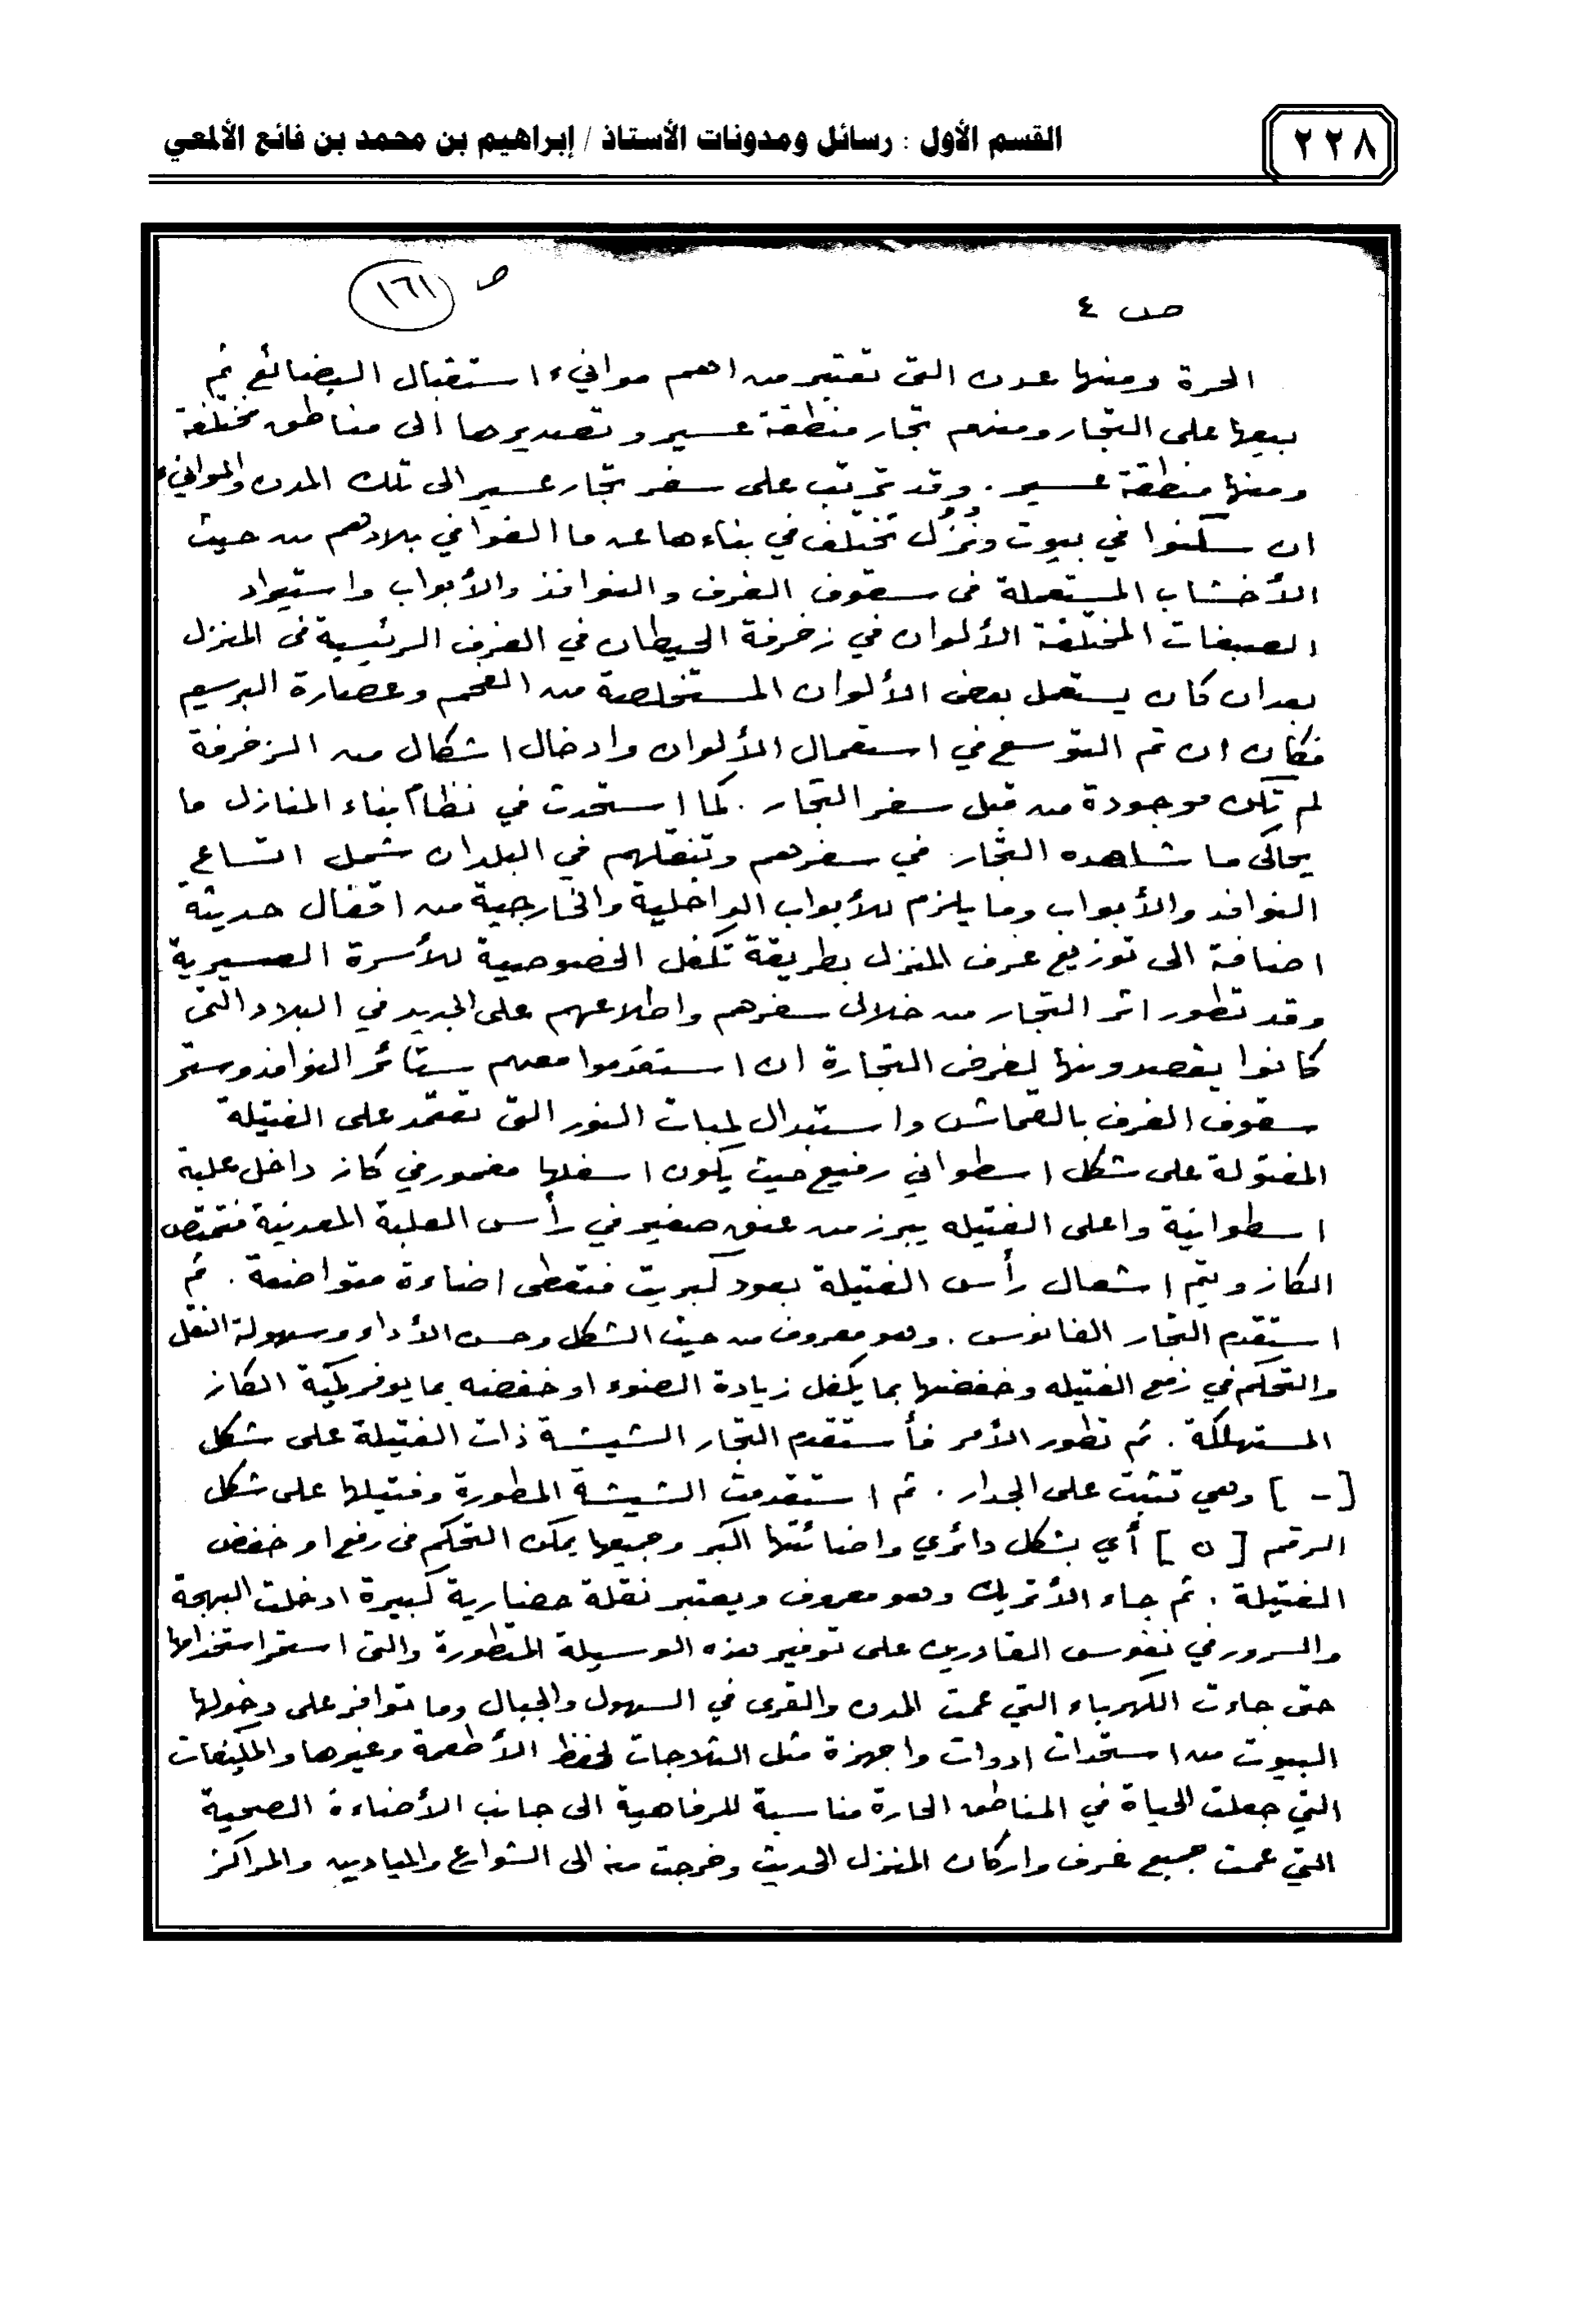 ٢٢٨
القسم الأول : رسائل ومدونات الأستاذ / إبراهيم بن محمد بن فائع الألمعي
ص ٤
ص ١٦١
الحرة ومنها عدن التي تعتبر من اهم موانيء استقبال البضائع ثم
بيعها على التجار ومنهم تجار منطقة عسير وتصديرها الى مناطق مختلفة
ومنها منطقة عسير . وقد ترتب على سفر تجار عسير الى تلك المدن والموانيء
ان سكنوا في بيوت ونُزُل تختلف في بناءها عن ما الفوا في بلادهم من حيث
الأخشاب المستعملة في سقوف الغرف والنوافذ والأبواب واستيراد
الصبغات المختلفة الألوان في زخرفة الحيطان في الغرف الرئيسية في المنزل
بعد ان كان يستعمل بعض الألوان المستخلصة من الفحم وعصارة البرسيم
فكان ان تم التوسع في استعمال الألوان وادخال اشكال من الزخرفة
لم تكن موجودة من قبل سفر التجار . كما استحدث في نظام بناء المنازل ما
يحاكى ما شاهده التجار في سفرهم وتنقلهم في البلدان شمل اتساع
النوافد والأبواب وما يلزم للأبواب الداخلية والخارجية من اقفال حديثة
اضافة الى توزيع غرف المنزل بطريقة تكفل الخصوصية للأسرة العسيرية
وقد تطور اثر التجار من خلال سفرهم واطلاعهم على الجديد في البلاد التى
كانوا يقصدونها لغرض التجارة ان استقدموا معهم ستائر النوافذ وستر
سقوف الغرف بالقماش واستبدال لمبات النور التى تعتمد على الفتيلة
المفتولة على شكل اسطواني رفيع حيث يكون اسفلها مغمور في كاز داخل علبة
اسطوانية واعلى الفتيله يبرز من عنق صغير في رأس العلبة المعدنية فتمتص
الكاز ويتم اشعال رأس الفتيلة بعود كبريت فتعطى اضاءة متواضعة . ثم
استقدم التجار الفانوس . وهو معروف من حيث الشكل وحسن الأداء وسهولة النقل
والتحكم في رفع الفتيله وخفضها بما يكفل زيادة الضوء او خفضه بما يوفر كمية الكاز
المستهلكة . ثم تطور الأمر فأستقدم التجار الشيشة ذات الفتيلة على شكل
[ - ] وهي تثبت على الجدار . ثم استقدمت الشيشة المطورة وفتيلها على شكل
الرقم [ ٥ ] أي بشكل دائري واضائتها اكبر وجميعها يمكن التحكم في رفع او خفض
الفتيلة . ثم جاء الأتريك وهو معروف ويعتبر نقلة حضارية كبيرة ادخلت البهجة
والسرور في نفوس القادرين على توفير هذه الوسيلة المتطورة والتى استمر استخدامها
حتى جاءت الكهرباء التي عمت المدن والقرى في السهول والجبال وما توافر على دخولها
البيوت من استحداث ادوات واجهزة مثل الثلاجات لحفظ الأطعمة وغيرها والمكيفات
التي جعلت الحياة في المناطق الحارة مناسبة للرفاهية الى جانب الأضاءة الصحية
التي عمت جميع غرف واركان المنزل الحديث وخرجت منه الى الشوارع والميادين والمراكز